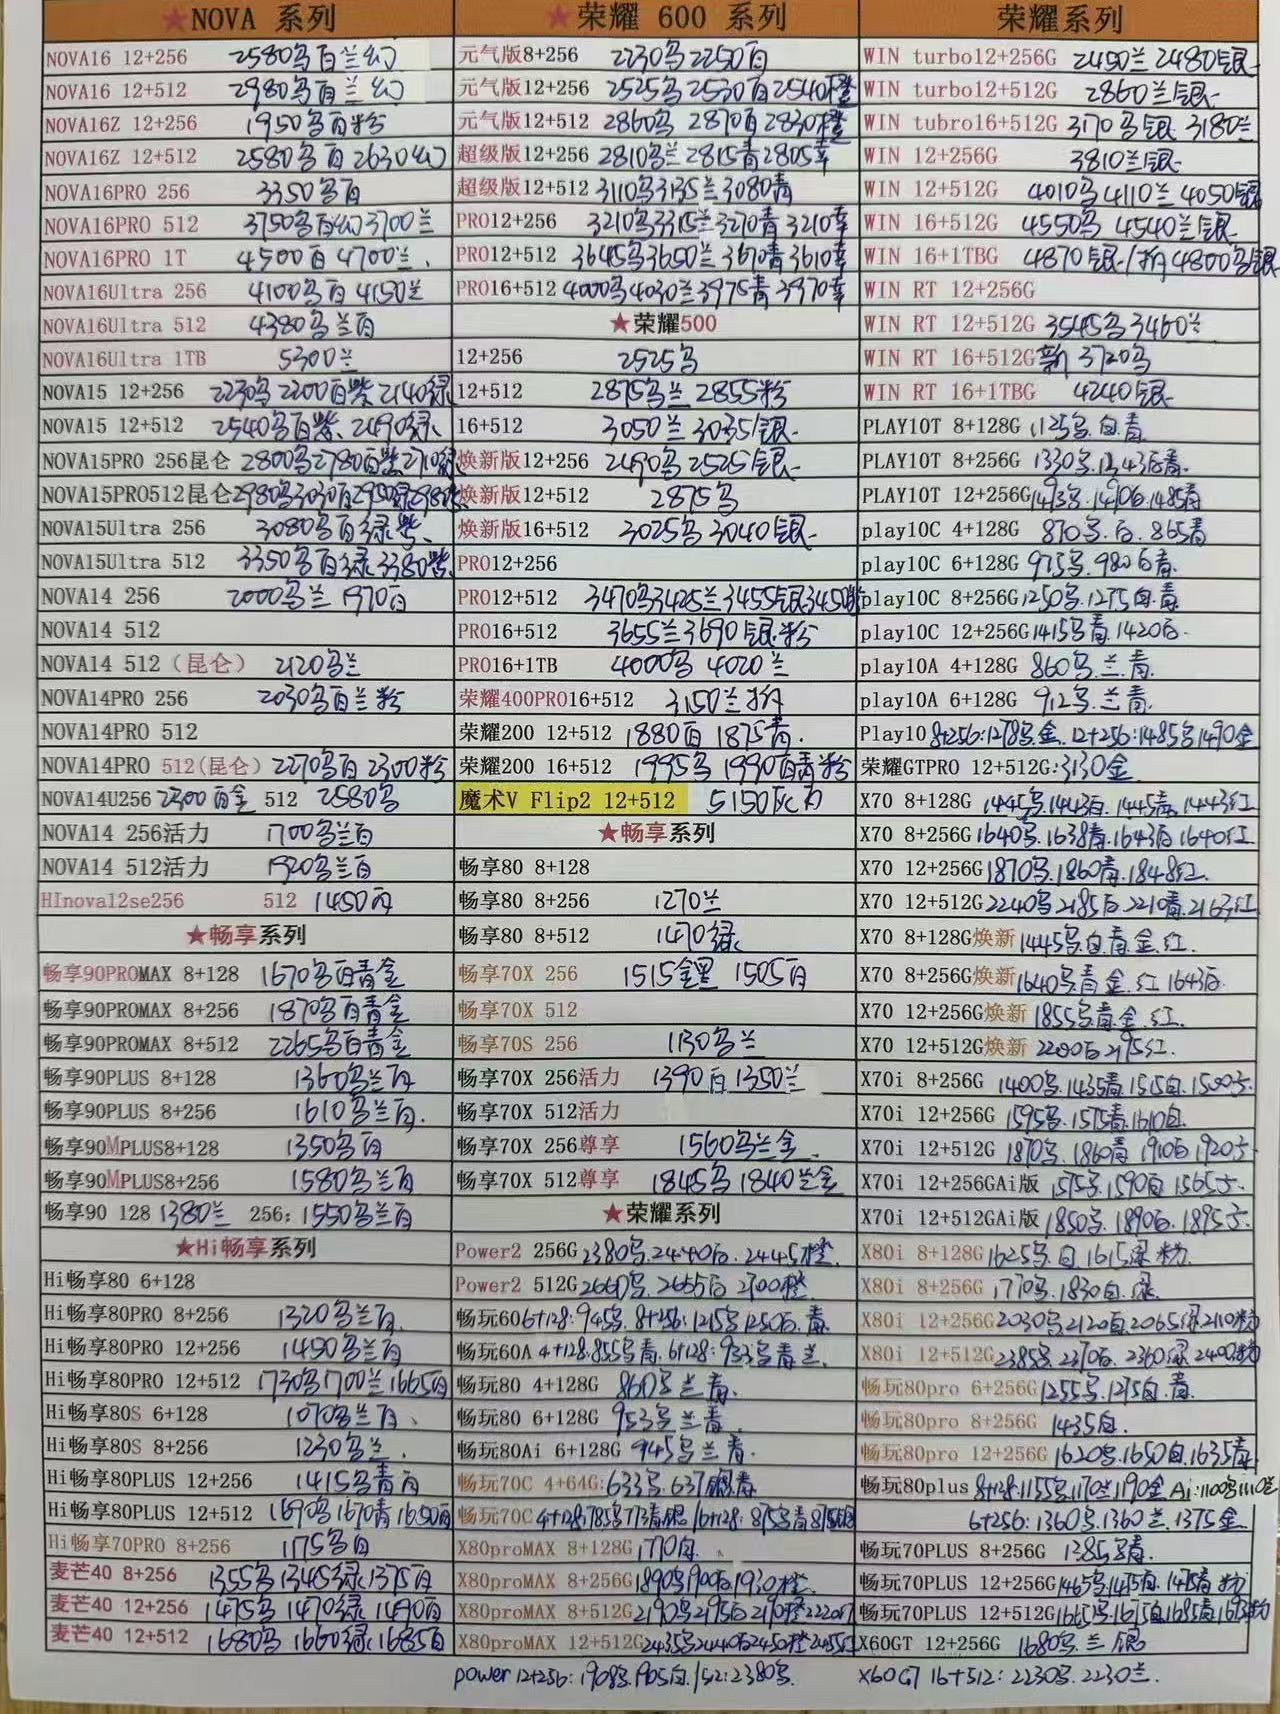 ★NOVA 系列
NOVA16 12+256 2580乌白兰幻
NOVA16 12+512 2980乌白兰幻
NOVA16Z 12+256 1950乌白粉
NOVA16Z 12+512 2580乌白 2630幻
NOVA16PRO 256 3350乌白
NOVA16PRO 512 3750乌白幻 3700兰
NOVA16PRO 1T 4500白 4700兰.
NOVA16Ultra 256 4100乌白 4150兰
NOVA16Ultra 512 4380乌兰白
NOVA16Ultra 1TB 5300兰
NOVA15 12+256 2230乌 2200白紫 2140绿
NOVA15 12+512 2540乌白紫. 2490绿.
NOVA15PRO 256昆仑 2800乌2780白紫2710绿
NOVA15PRO512昆仑 2980乌3030白2950绿
NOVA15Ultra 256 3080乌白绿紫.
NOVA15Ultra 512 3350乌白绿 3380紫
NOVA14 256 2000乌兰 1970白
NOVA14 512
NOVA14 512（昆仑） 2120乌兰
NOVA14PRO 256 2030乌白兰粉
NOVA14PRO 512
NOVA14PRO 512(昆仑) 2270乌白 2300粉
NOVA14U256 2300白金 512 2580乌
NOVA14 256活力 1700乌兰白
NOVA14 512活力 1920乌兰白
HInova12se256 512 1450白
★畅享系列
畅享90PROMAX 8+128 1670乌白青金
畅享90PROMAX 8+256 1870乌白青金
畅享90PROMAX 8+512 2265乌白青金
畅享90PLUS 8+128 1360乌兰白
畅享90PLUS 8+256 1610乌兰白.
畅享90MPLUS8+128 1350乌白
畅享90MPLUS8+256 1580乌兰白
畅享90 128 1380兰 256: 1550乌兰白
★Hi畅享系列
Hi畅享80 6+128
Hi畅享80PRO 8+256 1320乌兰白.
Hi畅享80PRO 12+256 1450乌兰白
Hi畅享80PRO 12+512 1730乌1700兰1665白
Hi畅享80S 6+128 1070乌兰白、
Hi畅享80S 8+256 1230乌兰.
Hi畅享80PLUS 12+256 1415乌青白
Hi畅享80PLUS 12+512 1690乌1670青1650白
Hi畅享70PRO 8+256 1175乌白
麦芒40 8+256 1355乌1345绿1375白
麦芒40 12+256 1475乌 1470绿 1490白
麦芒40 12+512 1680乌 1660绿 1685白
★荣耀 600 系列
元气版8+256 2230乌 2250白
元气版12+256 2525乌 2530白 2540橙
元气版12+512 2860乌 2870白 2830橙
超级版12+256 2810乌兰 2815青 2805幸
超级版12+512 3110乌3135兰3080青
PRO12+256 3210乌3315兰3270青 3210幸
PRO12+512 3645乌3650兰 3670青3610幸
PRO16+512 4000乌4030兰3975青 3970幸
★荣耀500
12+256 2525乌
12+512 2875乌兰 2855粉
16+512 3050兰 3035银.
焕新版12+256 2490乌 2525银.
焕新版12+512 2875乌
焕新版16+512 3025乌 3040银.
PRO12+256
PRO12+512 3470乌3425兰3455银3450粉
PRO16+512 3655兰3690银.粉
PRO16+1TB 4000乌 4020兰
荣耀400PRO16+512 3150兰
荣耀200 12+512 1880白 1875青.
荣耀200 16+512 1995乌 1990白青粉
魔术V Flip2 12+512 5150灰
★畅享系列
畅享80 8+128
畅享80 8+256 1270兰
畅享80 8+512 1470绿
畅享70X 256 1515金黑 1505白
畅享70X 512
畅享70S 256 1130乌兰
畅享70X 256活力 1390白1350兰
畅享70X 512活力
畅享70X 256尊享 1560乌兰金.
畅享70X 512尊享 1845乌 1840兰金
★荣耀系列
Power2 256G 2380乌.2440白. 2445橙.
Power2 512G 2660乌. 2655白 2700橙.
畅玩60 6+128: 945乌. 8+256: 1215乌 1250白. 青
畅玩60A 4+128.855乌青. 6+128: 933乌青兰.
畅玩80 4+128G 860乌兰青.
畅玩80 6+128G 953乌兰青.
畅玩80Ai 6+128G 945乌兰青.
畅玩70C 4+64G: 633乌. 637银青
畅玩70C 4+128:785乌773青银 6+128: 875乌青875银
X80proMAX 8+128G 1770白.
X80proMAX 8+256G 1890乌1900白1930橙.
X80proMAX 8+512G 2190乌2195白2190橙2220
X80proMAX 12+512G 2435乌2440白2450橙2455红
power 12+256: 1908乌.1905白./512: 2380乌.
荣耀系列
WIN turbo12+256G 2450兰 2480银.
WIN turbo12+512G 2860兰银.
WIN tubro16+512G 3170乌银 3180兰
WIN 12+256G 3810兰银.
WIN 12+512G 4010乌 4110兰 4050银
WIN 16+512G 4550乌 4540兰银.
WIN 16+1TBG 4870银 4800乌银
WIN RT 12+256G
WIN RT 12+512G 3545乌 3460兰
WIN RT 16+512G 新 3720乌
WIN RT 16+1TBG 4240银.
PLAY10T 8+128G 1125乌.白.青
PLAY10T 8+256G 1330乌. 1343白青.
PLAY10T 12+256G 1493乌.1490白.1485青
play10C 4+128G 870乌. 白. 865青
play10C 6+128G 975乌. 980白青.
play10C 8+256G 1250乌.1275白.青
play10C 12+256G 1415乌青.1420白.
play10A 4+128G 860乌.兰.青.
play10A 6+128G 912乌.兰青.
Play10 8+256:1278乌.金. 12+256:1485乌1490金
荣耀GTPRO 12+512G: 3130金.
X70 8+128G 1445乌.1443白.1445青.1443红
X70 8+256G 1640乌.1638青.1643白1640红
X70 12+256G 1870乌.1860青.1848红.
X70 12+512G 2240乌2185白.2210青.2163红
X70 8+128G焕新 1445乌.白.青.金.红.
X70 8+256G焕新 1640乌青金.红 1643白.
X70 12+256G焕新 1855乌.青.金.红.
X70 12+512G焕新 2200白2195红.
X70i 8+256G 1400乌.1435青.1515白.1500
X70i 12+256G 1595乌.1575青.1610白
X70i 12+512G 1870乌.1860青 1910白1920
X70i 12+256GAi版 1575乌.1590白 1565
X70i 12+512GAi版 1850乌.1890白.1895
X80i 8+128G 1625乌.白.1615绿粉
X80i 8+256G 1770乌.1830白.绿.
X80i 12+256G 2030乌2120白.2065绿2110粉
X80i 12+512G 2385乌.2370白. 2360绿 2400粉
畅玩80pro 6+256G 1255乌.1275白.青.
畅玩80pro 8+256G 1435白.
畅玩80pro 12+256G 1620乌.1650白1635青
畅玩80plus 8+128:1155乌1170兰1190金 Ai:1100乌1110兰
6+256: 1360乌.1360兰.1375金
畅玩70PLUS 8+256G 1385乌青.
畅玩70PLUS 12+256G 1465乌.1475白.1475青粉
畅玩70PLUS 12+512G 1665乌.1675白1685青1693粉
X60GT 12+256G 1680乌.兰.银
X60GT 16+512: 2230乌.2230兰.